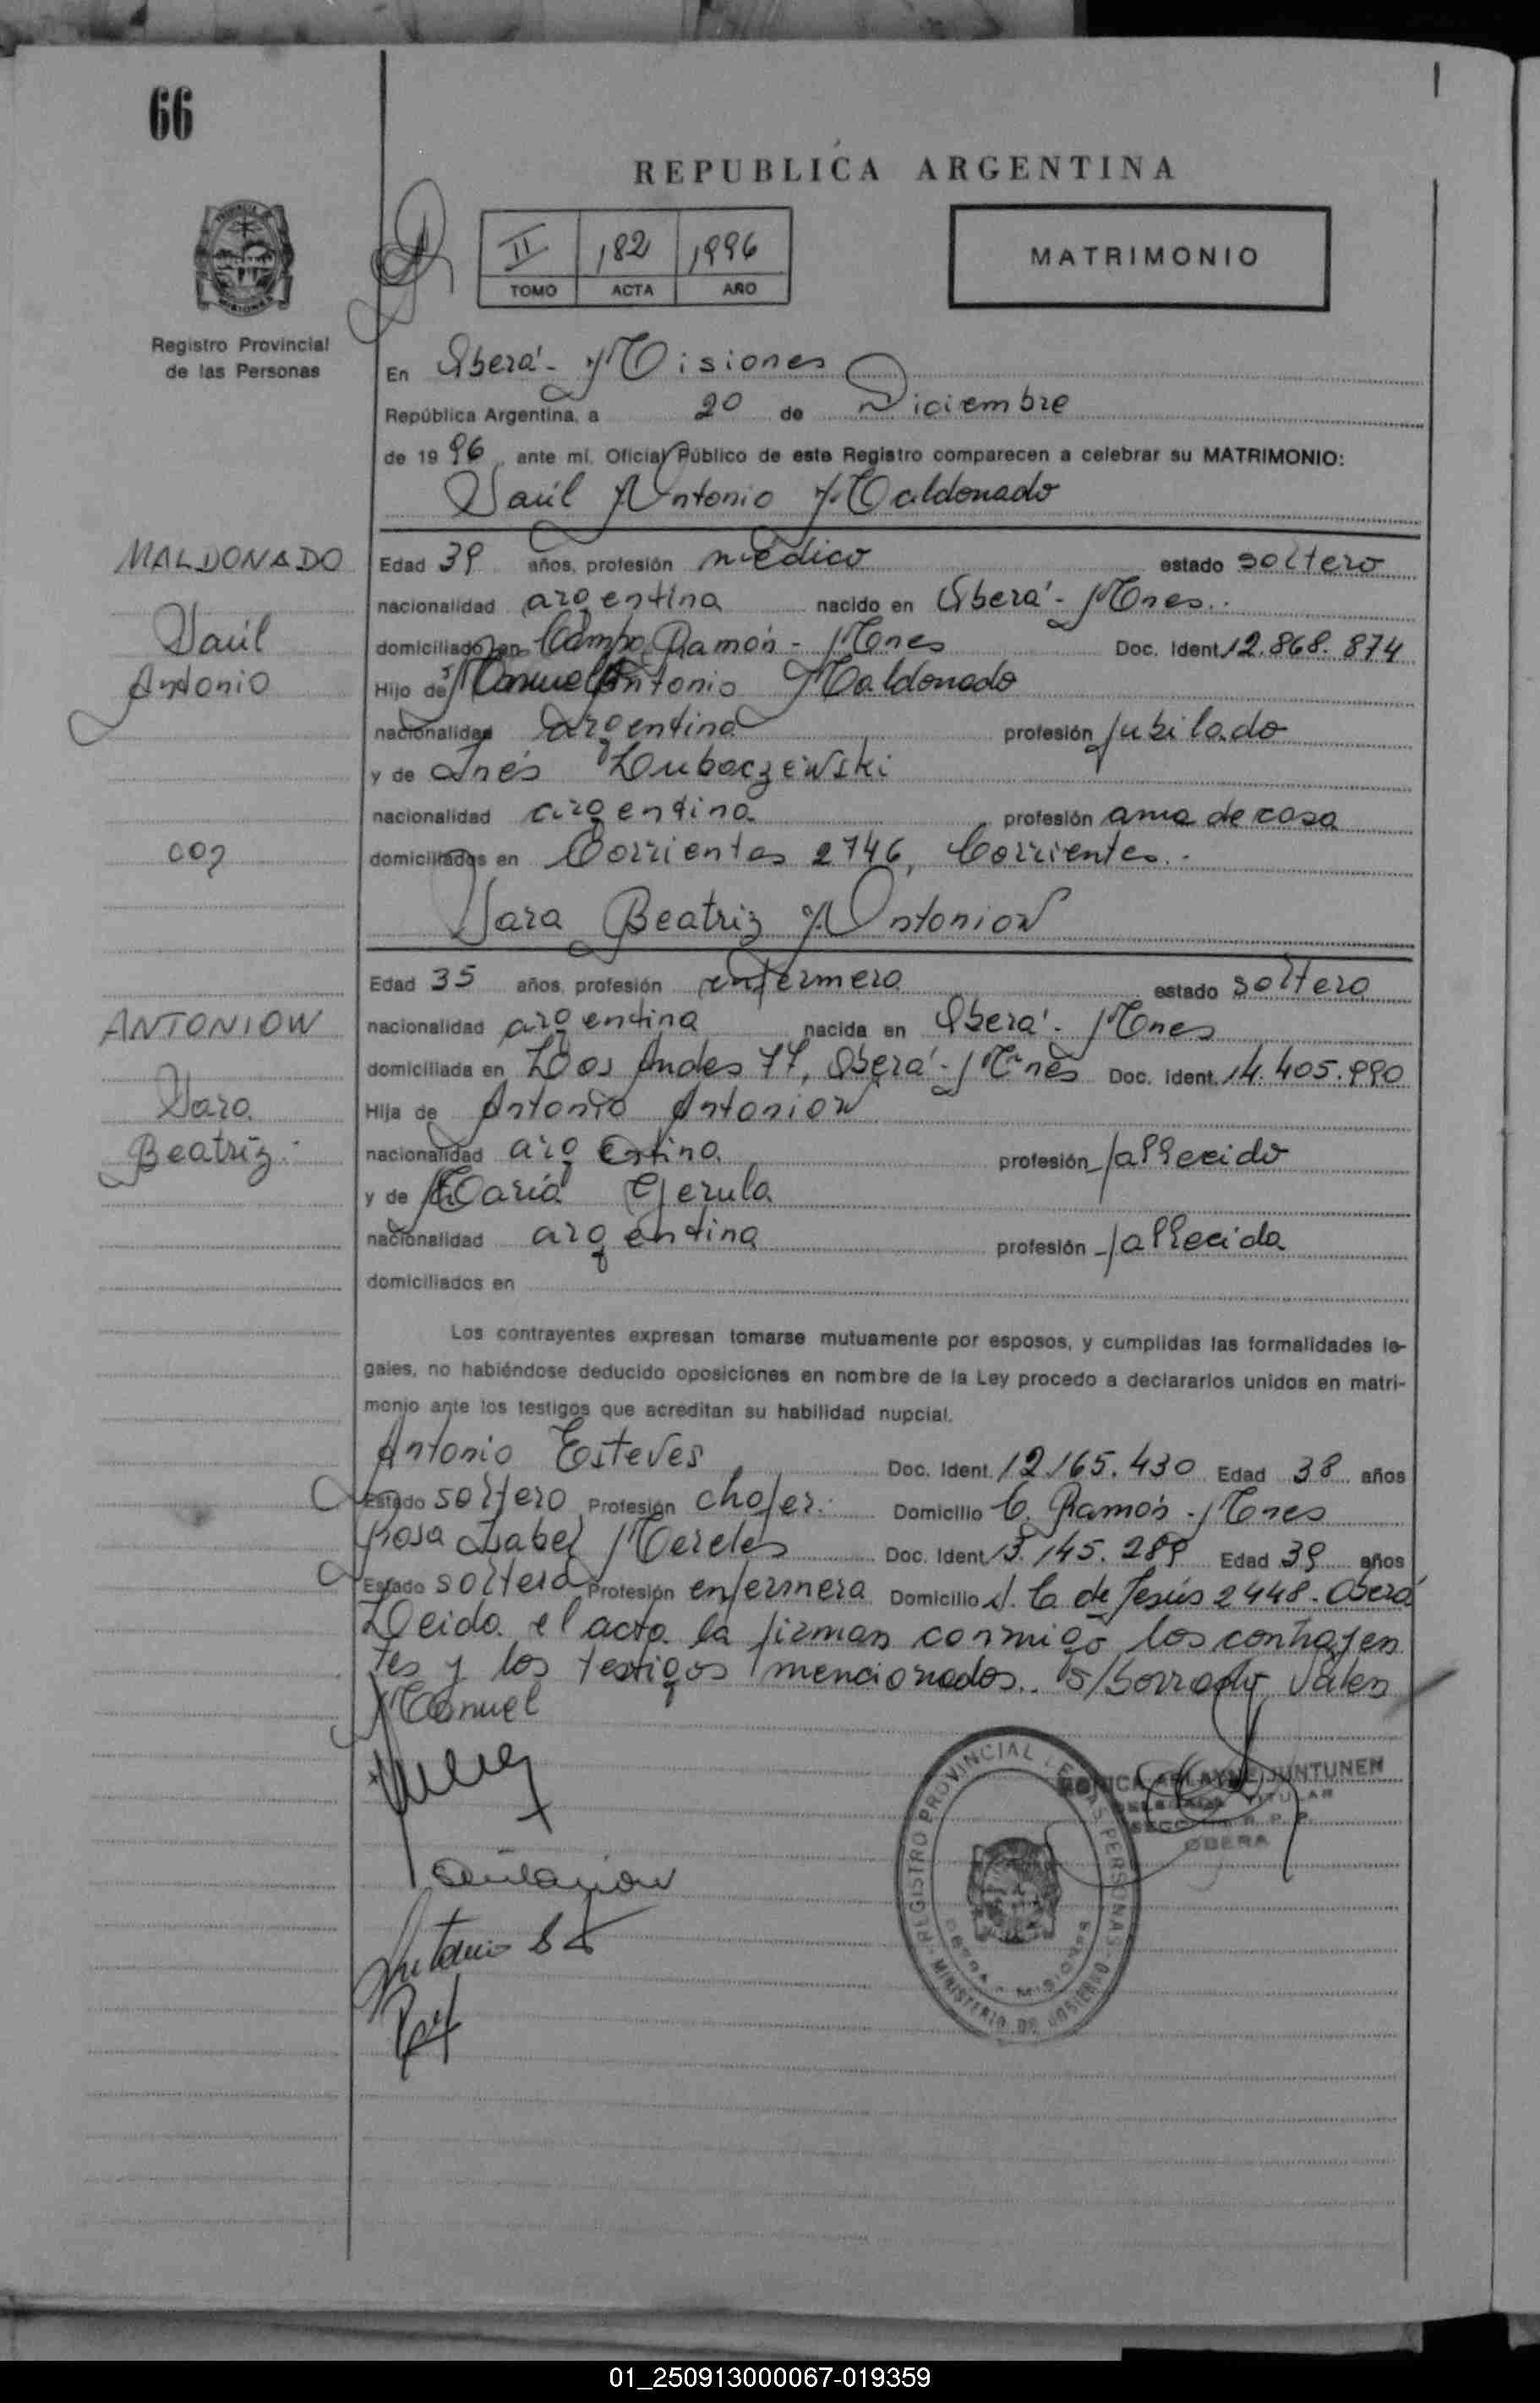 66
REPUBLICA ARGENTINA
II 182 1996
TOMO ACTA AÑO
MATRIMONIO
Registro Provincial
de las Personas
En Oberá - Misiones
República Argentina, a 20 de Diciembre
de 1996, ante mí, Oficial Público de este Registro comparecen a celebrar su MATRIMONIO:
Saúl Antonio Maldonado
MALDONADO
Saúl
Antonio
con
ANTONIOW
Sara
Beatriz.
Edad 39 años, profesión médico estado soltero
nacionalidad argentina nacido en Oberá - Mnes.
domiciliado en Campo Ramón - Mnes Doc. Ident. 12.868.874
Hijo de Manuel Antonio Maldonado
nacionalidad argentina profesión jubilado
y de Inés Lubaczewski
nacionalidad argentina profesión ama de casa
domiciliados en Corrientes 2746, Corrientes.
Sara Beatriz Antoniow
Edad 35 años, profesión enfermera estado soltera
nacionalidad argentina nacida en Oberá - Mnes
domiciliada en Los Andes 77, Oberá - Mnes Doc. Ident. 14.405.990
Hija de Antonio Antoniow
nacionalidad argentina profesión fallecido
y de María Gerula
nacionalidad argentina profesión fallecida
domiciliados en
Los contrayentes expresan tomarse mutuamente por esposos, y cumplidas las formalidades le-
gales, no habiéndose deducido oposiciones en nombre de la Ley procedo a declararlos unidos en matri-
monio ante los testigos que acreditan su habilidad nupcial.
Antonio Esteves Doc. Ident. 12.165.430 Edad 38 años
Estado soltero Profesión chofer. Domicilio C. Ramón - Mnes
Rosa Isabel Mereles Doc. Ident. 13.145.289 Edad 39 años
Estado soltera Profesión enfermera Domicilio S. C de Jesús 2448 - Oberá
Leida el acta la firman conmigo los contrayen
tes y los testigos mencionados. s/borrado Valen
Manuel
JUNTUNEN
TITULAR
OBERA
REGISTRO PROVINCIAL DE LAS PERSONAS - MINISTERIO DE GOBIERNO
OBERA - MISIONES
01_250913000067-019359